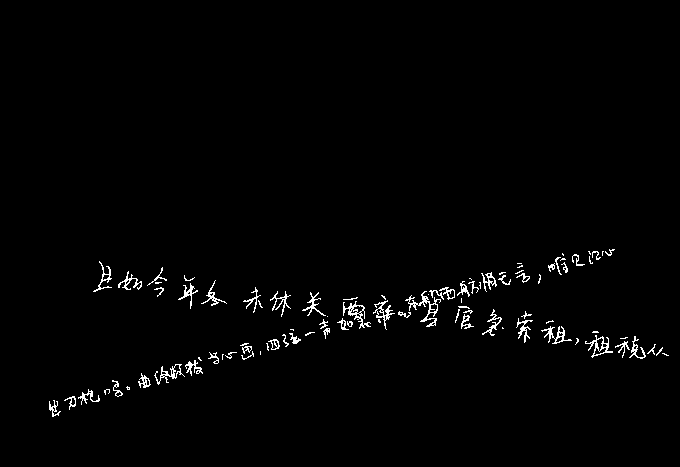 且如今年冬未休关西卒。县官急索租,租税从
出刀枪鸣。曲终收拨当心画,四弦一声如裂帛。东船西舫悄无言,唯见江心